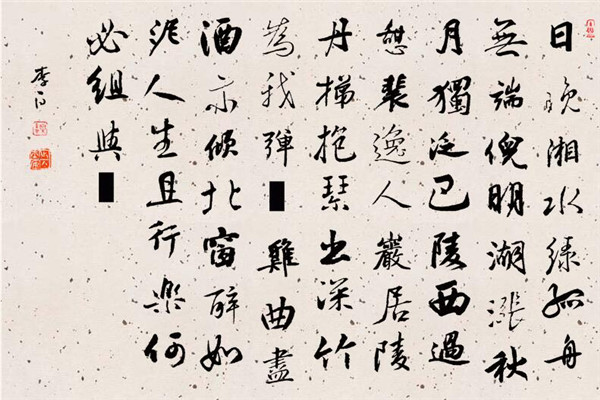 日晚湘水綠孤舟
無端倪明湖漲秋
月獨泛巴陵西過
憩裴逸人巖居陵
丹梯抱琴出深竹
為我彈雞曲盡
酒亦傾北窗醉如
泥人生且行樂何
必組與
李白